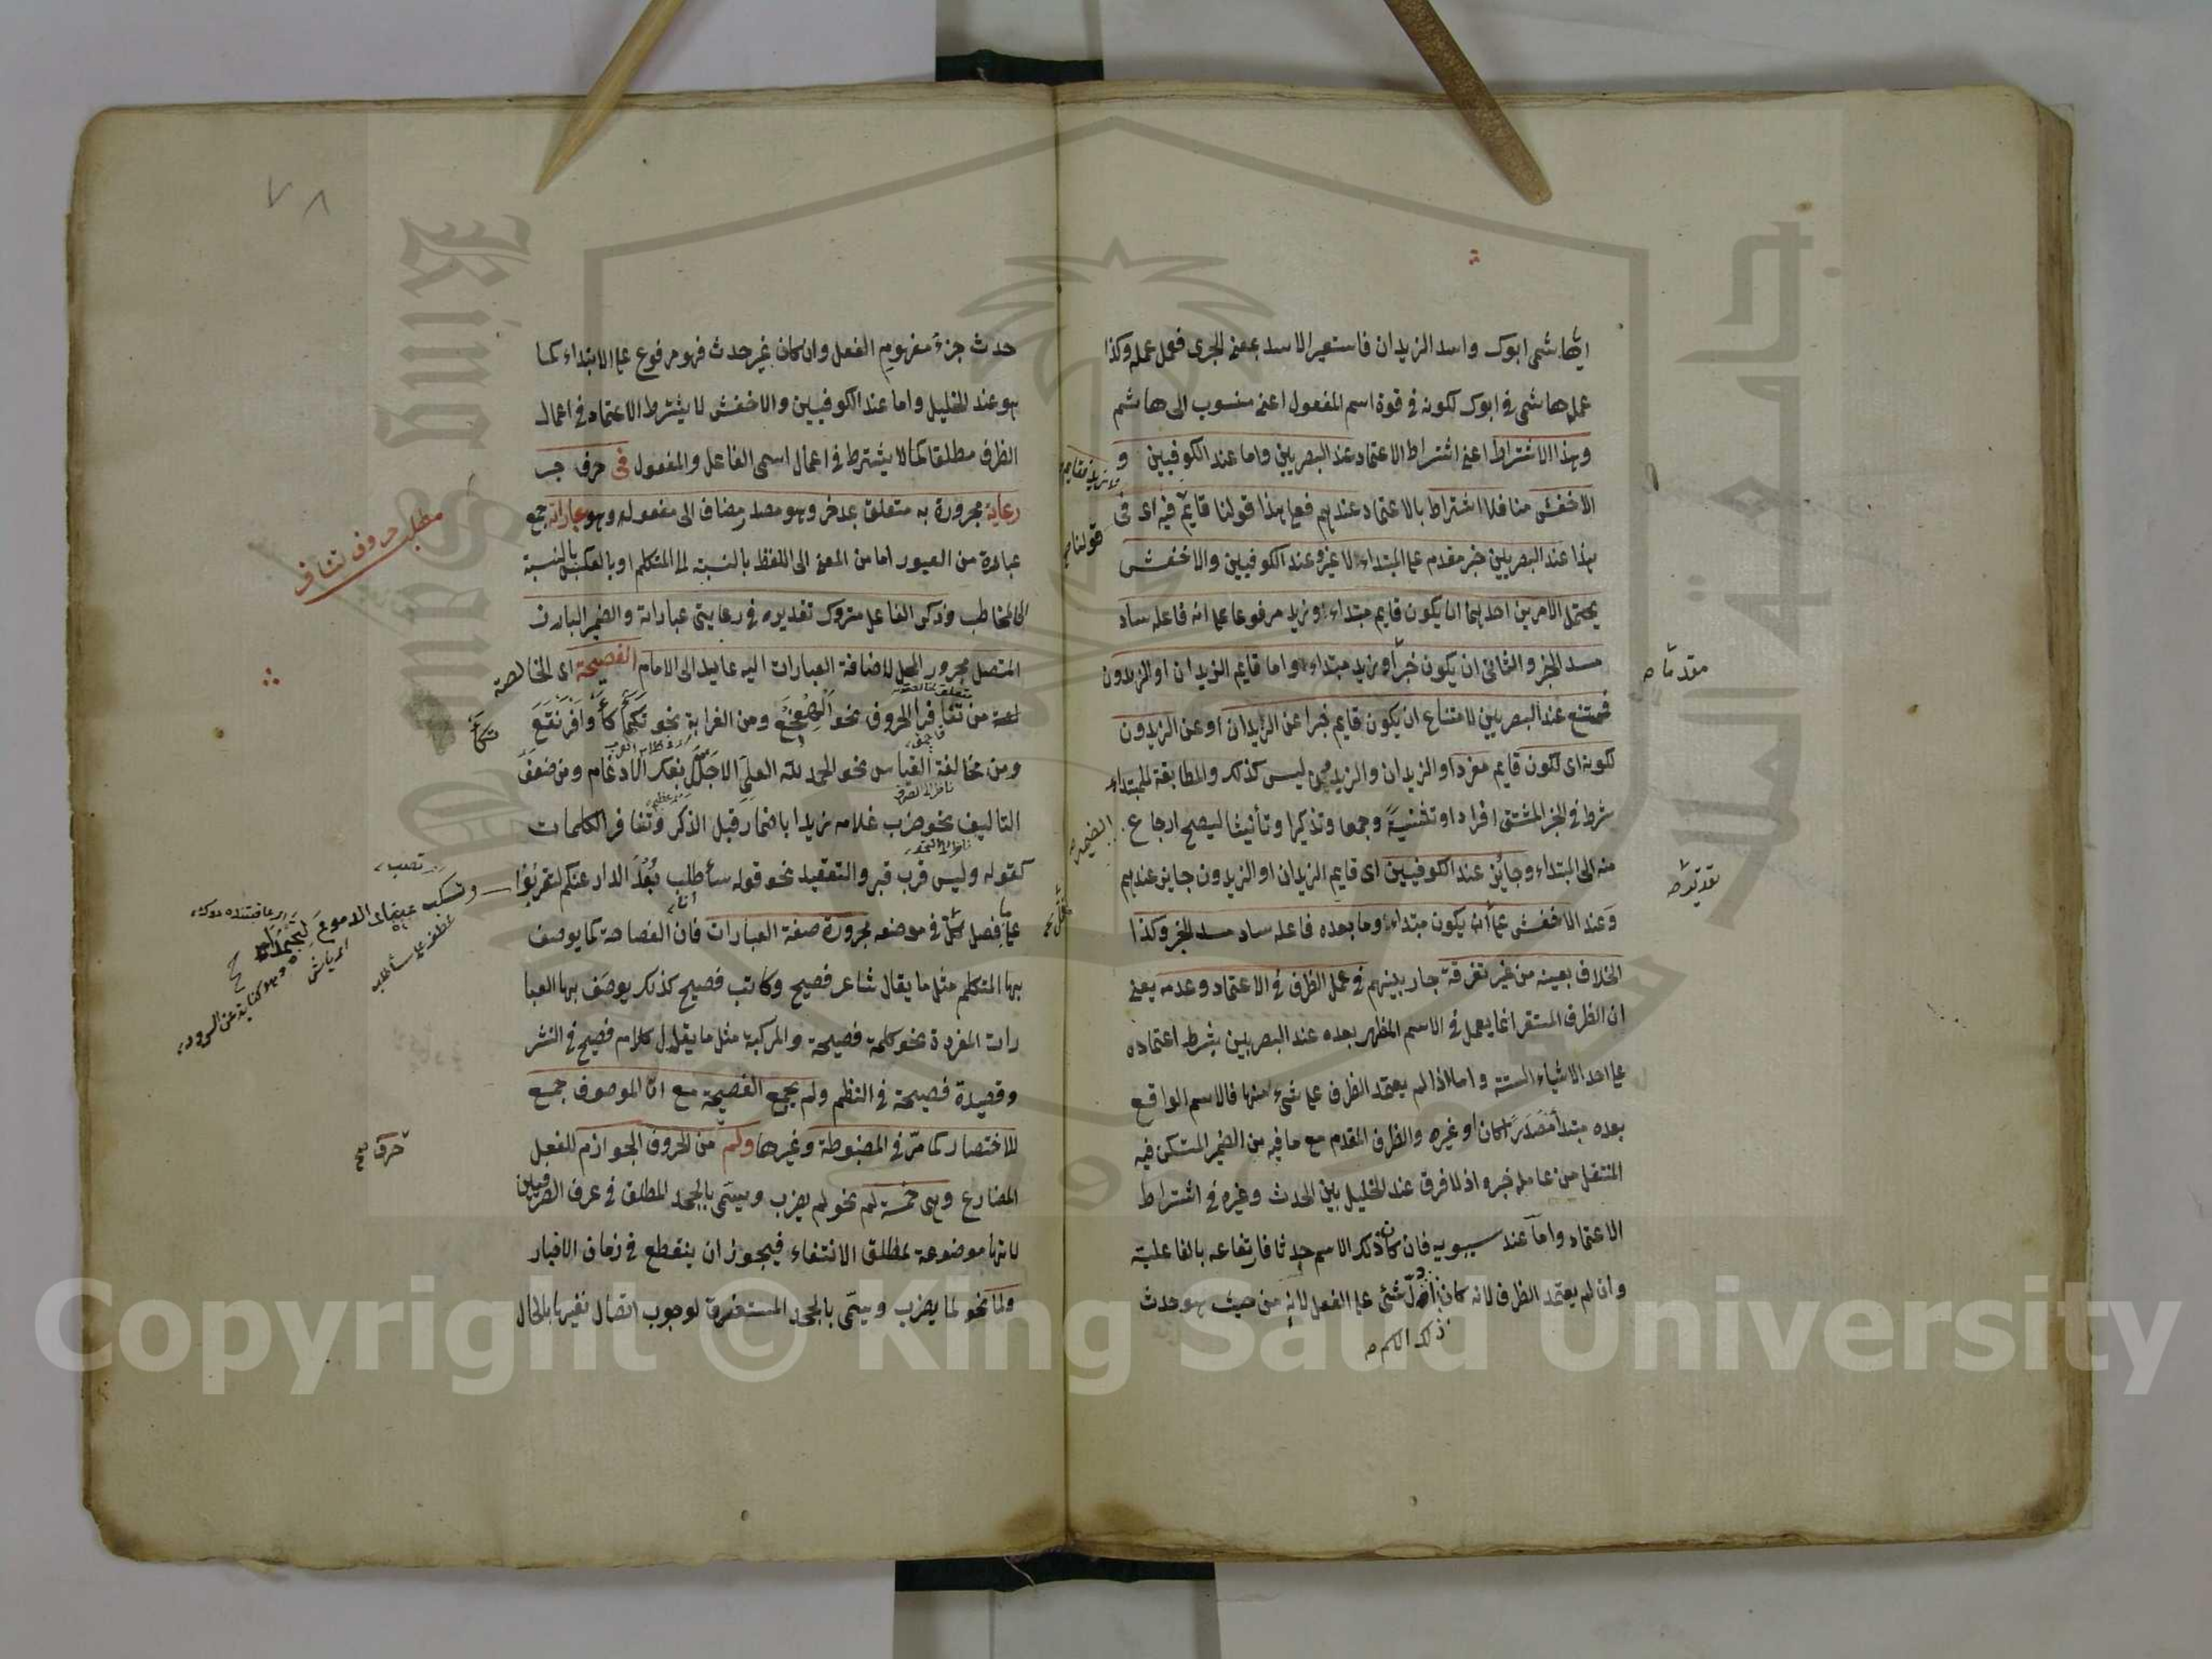 ايها شمى ابوك واسد الزيدان فاستعير الاسد بمعنى الجرى فعمل عمله وكذا
عمل هاشمى فى ابوك لكونه فى قوة اسم المفعول اعنى منسوب الى هاشم
وهذا الاشتراط اعنى اشتراط الاعتماد عند البصريين واما عند الكوفيين و
الاخفش منا فلا اشتراط بالاعتماد عندهم فعلى هذا قولنا قائم فيه اى فى
قولنا
هذا عند البصريين خبر مقدم على المبتداء لا غير وعند الكوفيين والاخفش
يحتمل الامرين احدهما ان يكون قايم مبتداء وزيد مرفوعا على انه فاعله ساد
مسد الخبر والثانى ان يكون خبرا وزيد مبتداء واما قايم الزيدان او الزيدون
فممتنع عند البصريين لامتناع ان يكون قايم خبرا عن الزيدان او عن الزيدون
لكونه اى لكون قايم مفردا والزيدان والزيدون ليس كذلك والمطابقة للمبتداء
شرط فى الخبر المشتق افرادا وتثنية وجمعا وتذكيرا وتأنيثا ليصح ارجاع
الضمير
منه الى المبتداء وجائز عند الكوفيين اى قايم الزيدان او الزيدون جايز عندهم
وعند الاخفش على ان يكون مبتداء وما بعده فاعله ساد مسد الخبر وكذا
الخلاف بعينه من غير تفرقة جار بينهم فى عمل الظرف فى الاعتماد وعدمه يعنى
ان الظرف المستقر انما يعمل فى الاسم المظهر بعده عند البصريين بشرط اعتماده
على احد الاشياء الستة واما اذا لم يعتمد الظرف على شىء منها فالاسم الواقع
بعده مبتدأ مصدرا كان او غيره والظرف المقدم مع ما فيه من الضمير المستكن فيه
المنتقل من عامله خبره اذ لا فرق عند الخليل بين الحدث وغيره فى اشتراط
الاعتماد واما عند سيبويه فان كان ذلك الاسم حدثا فارتفاعه بالفاعلية
وان لم يعتمد الظرف لانه كان ادل شئ على الفعل لانه من حيث هو حدث
ذلك الاسم
٧٨
حدث جزء مفهوم الفعل وان كان غير حدث فهو مرفوع على الابتداء كما
هو عند الخليل واما عند الكوفيين والاخفش لا يشترط الاعتماد فى اعمال
الظرف مطلقا كما لا يشترط فى اعمال اسمى الفاعل والمفعول فى حرف جر
رعاية مجرورة به متعلق بمدخر وهو مصدر مضاف الى مفعوله وهو عباراته جمع
عبارة من العبور اما من المعنى الى اللفظ بالنسبة الى المتكلم او بالعكس بالنسبة
الى المخاطب وذكر الفاعل متروك تقديره فى رعايتى عباراته والضمير البارز
المتصل مجرور المحل لاضافة العبارات اليه عايد الى الامام الفصيحة اى الخالصة
من تنافر الحروف نحو الهعخع ومن الغرابة نحو تكأكأ وافرنقع
ومن مخالفة القياس نحو الحمد لله العلى الاجلل بفك الادغام ومن ضعف
التاليف نحو ضرب غلامه زيدا باضمار قبل الذكر وتنافر الكلمات
كقوله وليس قرب قبر والتعقيد نحو قوله سأطلب بعد الدار عنكم لتقربوا
وتسكب عيناى الدموع لتجمدا
عطف على سأطلب
على ما فصل كل فى موضعه مجرورة صفة العبارات فان الفصاحة كما يوصف
بها المتكلم مثل ما يقال شاعر فصيح وكاتب فصيح كذلك يوصف بها العبا
رات المفردة نحو كلمة فصيحة والمركبة مثل ما يقال كلام فصيح فى النثر
وقصيدة فصيحة فى النظم ولم يجمع الفصيحة مع ان الموصوف جمع
للاختصار كما مر فى المضبوطة وغيرها ولم من الحروف الجوازم للفعل
المضارع وهى خمسة لم نحو لم يضرب ويسمى بالجحد المطلق فى عرف الصرفيين
لانها موضوعة لمطلق الانتفاء فيجوز ان ينقطع فى زمان الاخبار
ولما نحو لما يضرب ويسمى بالجحد المستغرق لوجوب اتصال نفيها بالحال
مطلب حروف تنافر
حرف
Copyright © King Saud University
King Saud
جامعة الملك